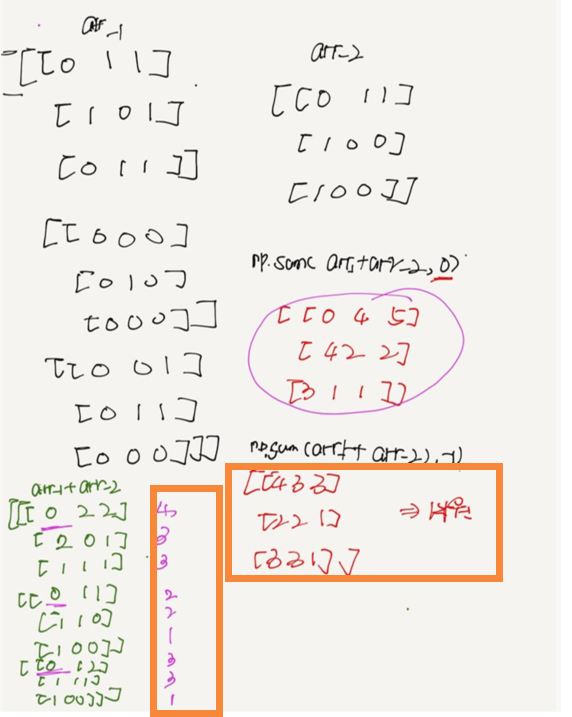 arr_1
[[[0 1 1]
[1 0 1]
[0 1 1]]
[[0 0 0]
[0 1 0]
[0 0 0]]
[[0 0 1]
[0 1 1]
[0 0 0]]]
arr_2
[[0 1 1]
[1 0 0]
[1 0 0]]
np.sum( arr_1+arr_2, 0)
[[0 4 5]
[4 2 2]
[3 1 1]]
np.sum(arr_1+ arr_2), -1)
[[4 3 3]
[2 2 1]
[3 3 1]]
⇒
arr_1+arr_2
[[[0 2 2] 4
[2 0 1] 3
[1 1 1] 3
[[0 1 1] 2
[1 1 0] 2
[1 0 0]] 1
[[0 1 2] 3
[1 1 1] 3
[1 0 0]]] 1